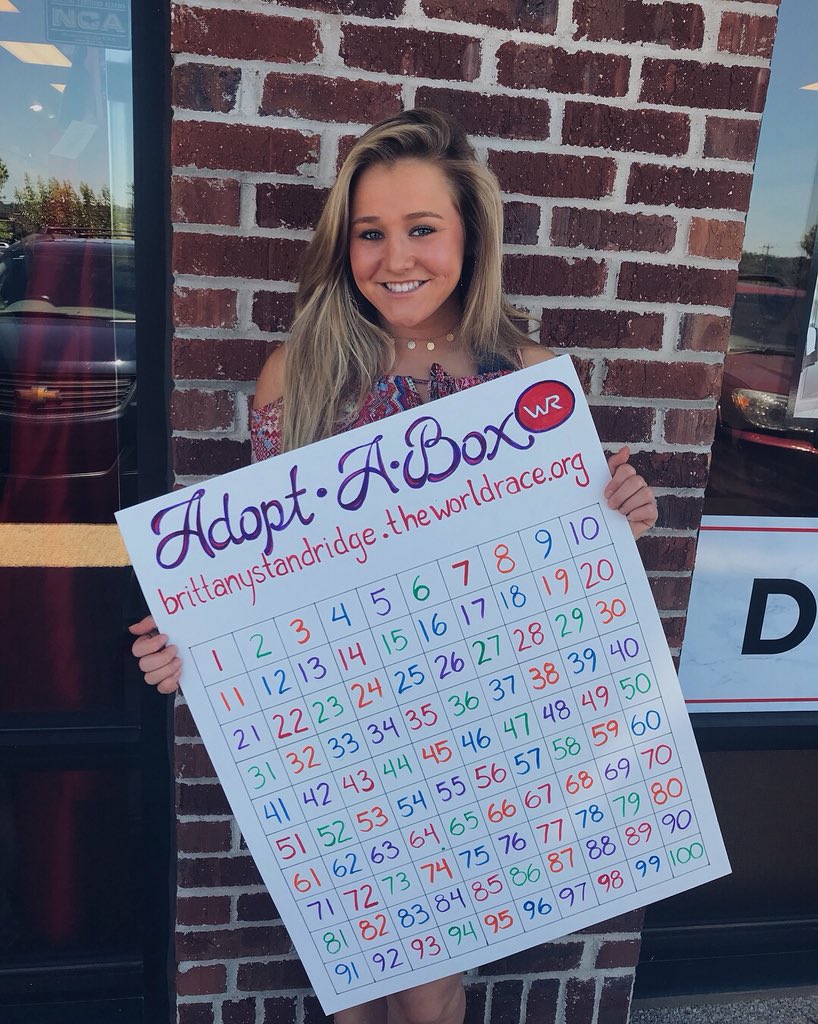 NCA
Adopt·A·Box WR
brittanystandridge.theworldrace.org
1 2 3 4 5 6 7 8 9 10
11 12 13 14 15 16 17 18 19 20
21 22 23 24 25 26 27 28 29 30
31 32 33 34 35 36 37 38 39 40
41 42 43 44 45 46 47 48 49 50
51 52 53 54 55 56 57 58 59 60
61 62 63 64 65 66 67 68 69 70
71 72 73 74 75 76 77 78 79 80
81 82 83 84 85 86 87 88 89 90
91 92 93 94 95 96 97 98 99 100
D